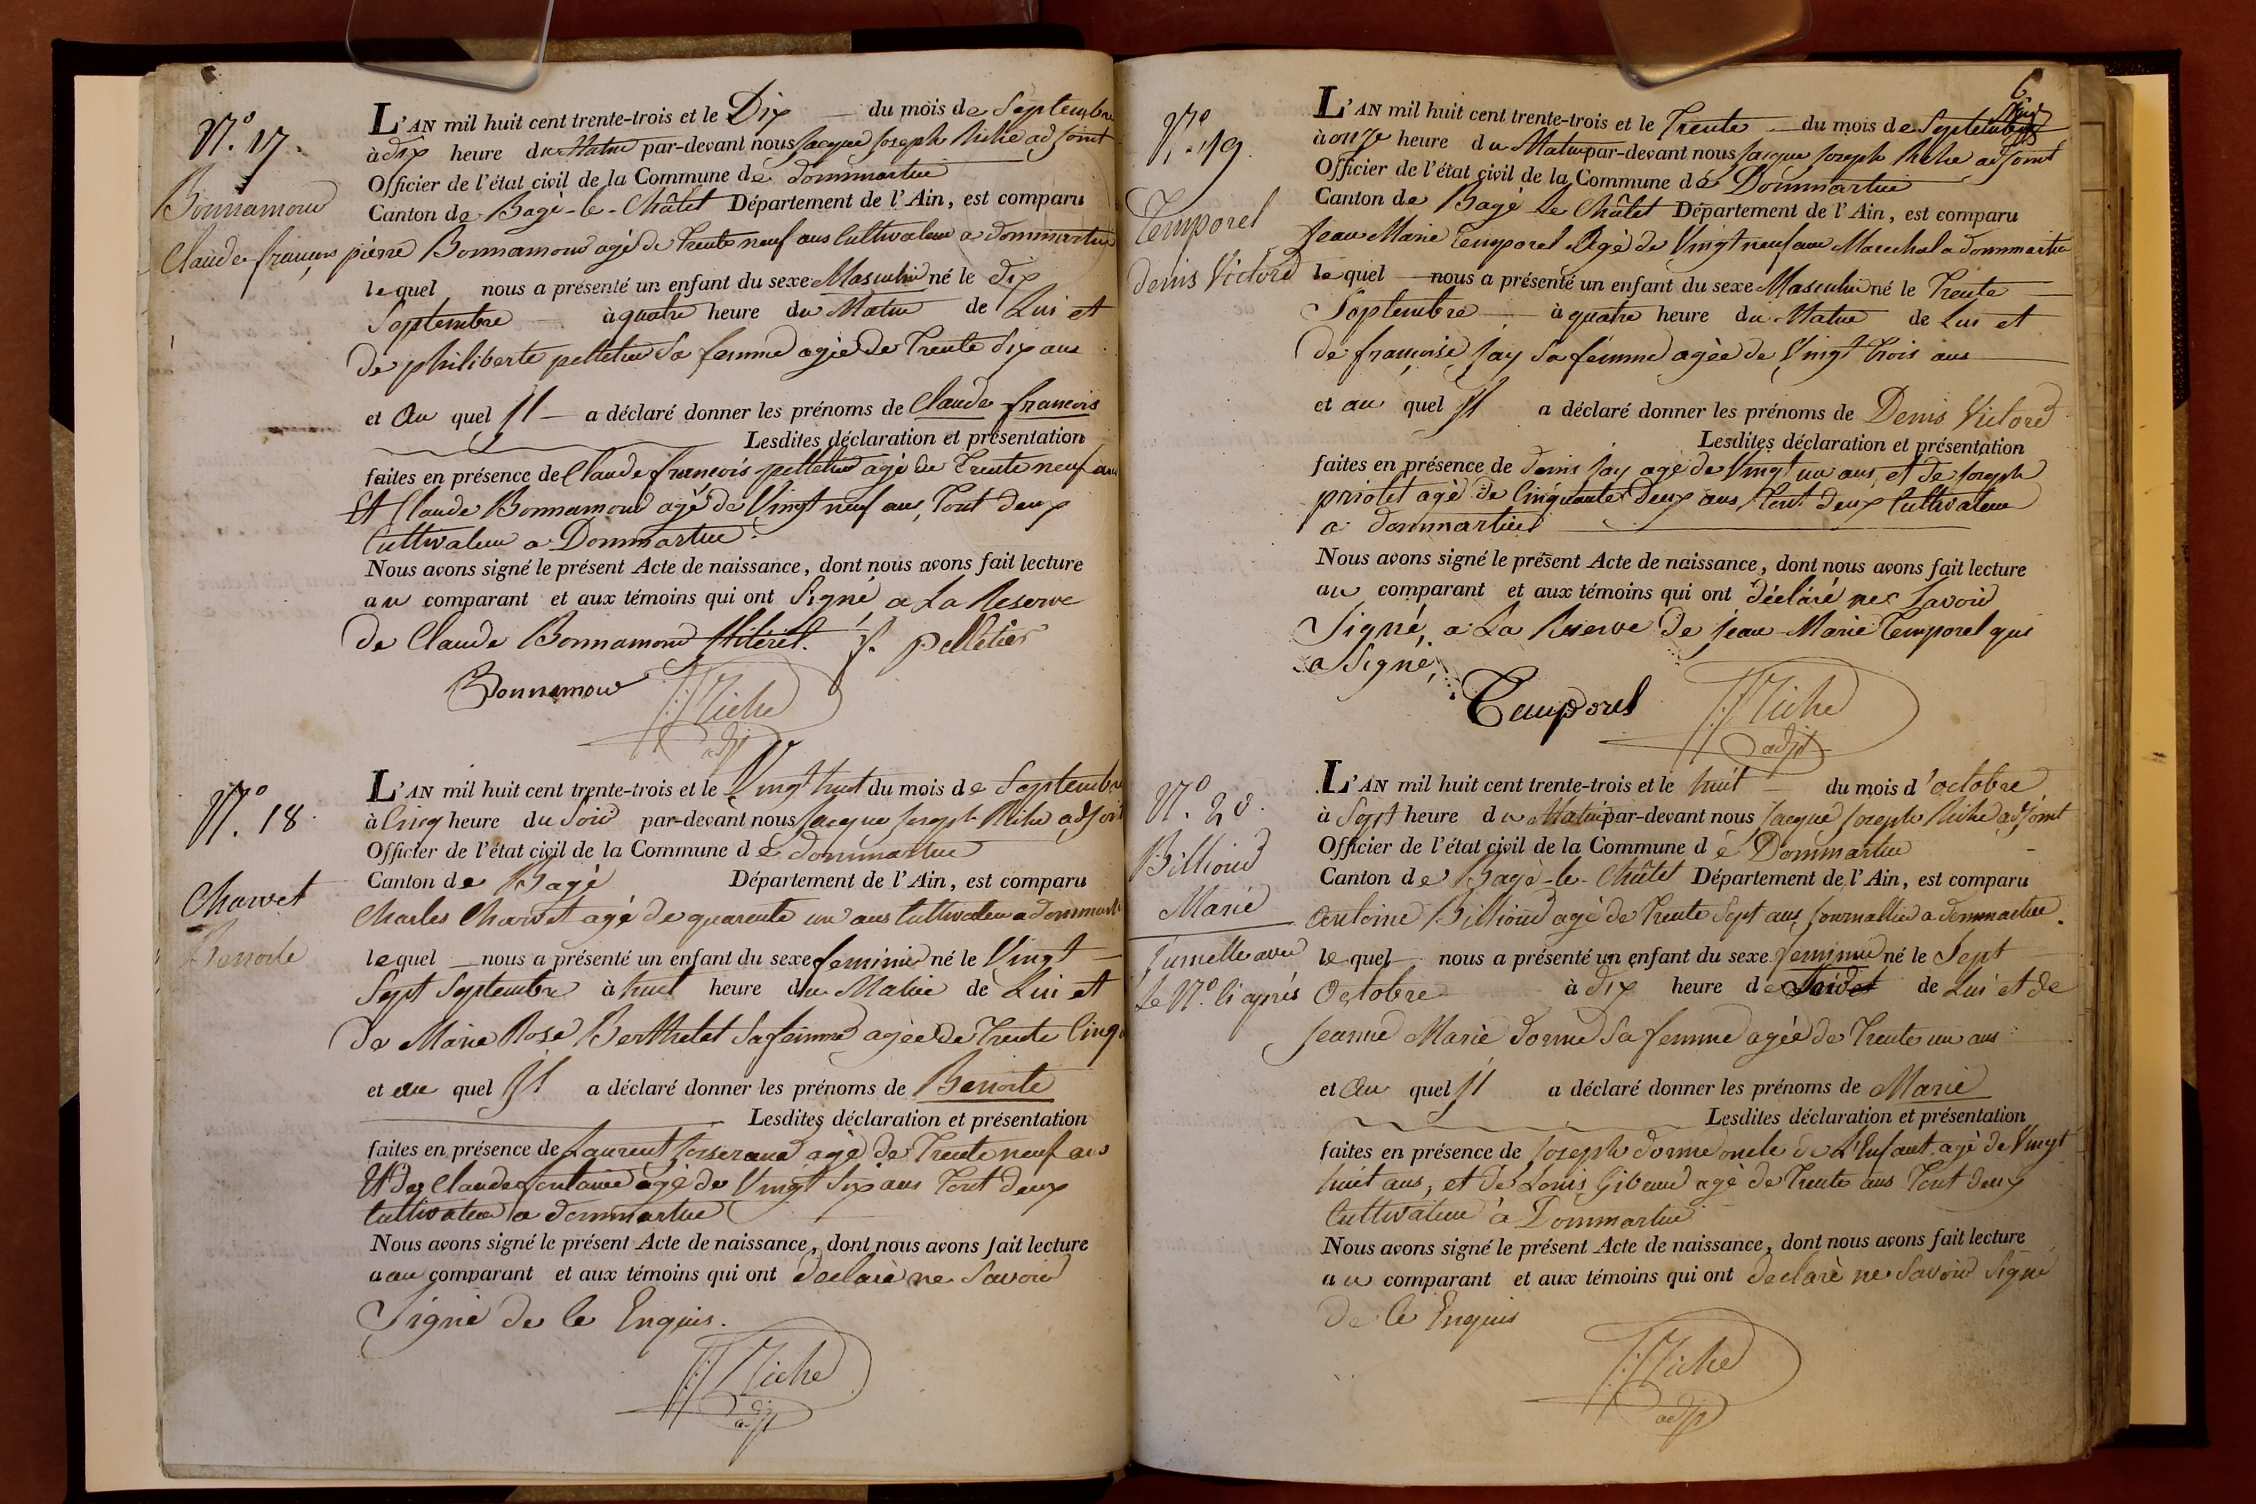 N.º 17.
Bonnamour
Claude françois
L'AN mil huit cent trente-trois et le Dix du mois de Septembre
à dix heure du Matin par-devant nous Jacque Joseph Riche adjoint
Officier de l'état civil de la Commune de Dommartin
Canton de Bagé-le-Châtel Département de l'Ain, est comparu
pierre Bonnamour agé de Trente neuf ans Cultivateur a dommartin
lequel nous a présenté un enfant du sexe Masculin né le dix
Septembre à quatre heure du Matin de Lui et
de philiberte pelletier Sa femme agée de Trente Six ans
et au quel Il a déclaré donner les prénoms de Claude françois
Lesdites déclaration et présentation
faites en présence de Claude françois pelletier agé de Trente neuf ans
Et Claude Bonnamour agé de Vingt neuf ans, Tout deux
Cultivateur a Dommartin.
Nous avons signé le présent Acte de naissance, dont nous avons fait lecture
au comparant et aux témoins qui ont Signé, a La Reserve
de Claude Bonnamour Illitéré. f. pelletier
Bonnamour
JJRiche
adjt
N.º 18.
Charvet
Benoite
L'AN mil huit cent trente-trois et le Vingt huit du mois de Septembre
à Cinq heure du Soir par-devant nous Jacque Joseph Riche adjoint
Officier de l'état civil de la Commune de dommartin
Canton de Bagé Département de l'Ain, est comparu
Charles Charvet agé de quarente un ans Cultivateur a dommartin
lequel nous a présenté un enfant du sexe feminin né le Vingt
Sept Septembre à huit heure du Matin de Lui et
de Marie Rose Berthelet Sa femme agée de Trente Cinq
et au quel Il a déclaré donner les prénoms de Benoite
Lesdites déclaration et présentation
faites en présence de Laurent Josserand agé de Trente neuf ans
Et de Claude fontaine agé de Vingt Six ans Tout deux
Cultivateur a dommartin
Nous avons signé le présent Acte de naissance, dont nous avons fait lecture
au comparant et aux témoins qui ont declaré ne Savoir
Signé de le Enquis.
JJRiche
adjt
N.º 19.
Temporel
denis Victord
L'AN mil huit cent trente-trois et le Trente du mois de Septembre
à onze heure du Matin par-devant nous Jacque Joseph Riche adjoint
Officier de l'état civil de la Commune de Dommartin
Canton de Bagé Le Châtel Département de l'Ain, est comparu
Jean Marie Temporel Agé de Vingt neuf ans Marechal a dommartin
lequel nous a présenté un enfant du sexe Masculin né le Trente
Septembre à quatre heure du Matin de Lui et
de françoise Jay Sa femme agée de Vingt Trois ans
et au quel Il a déclaré donner les prénoms de Denis Victord
Lesdites déclaration et présentation
faites en présence de denis Jay agé de Vingt un ans, et de Joseph
priolet agé de Cinquante deux ans, Tout deux Cultivateur
a dommartin
Nous avons signé le présent Acte de naissance, dont nous avons fait lecture
au comparant et aux témoins qui ont déclaré ne Savoir
Signé, a La Reserve de Jean-Marie Temporel qui
a Signé,
Temporel
JJRiche
adjt
N.º 20.
Billioud
Marie
Jumelle avec
Le N.º Ci après
L'AN mil huit cent trente-trois et le huit du mois d'octobre
à Sept heure du Matin par-devant nous Jacque Joseph Riche adjoint
Officier de l'état civil de la Commune de Dommartin
Canton de Bagé-le-Châtel Département de l'Ain, est comparu
Antoine Billioud agé de Trente Sept ans, Journallier a dommartin.
lequel nous a présenté un enfant du sexe feminin né le Sept
Octobre à dix heure de de Lui et de
Jeanne Marie dorme Sa femme agée de Trente un ans
et au quel Il a déclaré donner les prénoms de Marie
Lesdites déclaration et présentation
faites en présence de Joseph dorme oncle de L'Enfant agé de Vingt
huit ans, et de Louis Gibaud agé de Trente ans Tout deux
Cultivateur à Dommartin
Nous avons signé le présent Acte de naissance, dont nous avons fait lecture
au comparant et aux témoins qui ont declaré ne Savoir Signé
de le Enquis
JJRiche
adjt